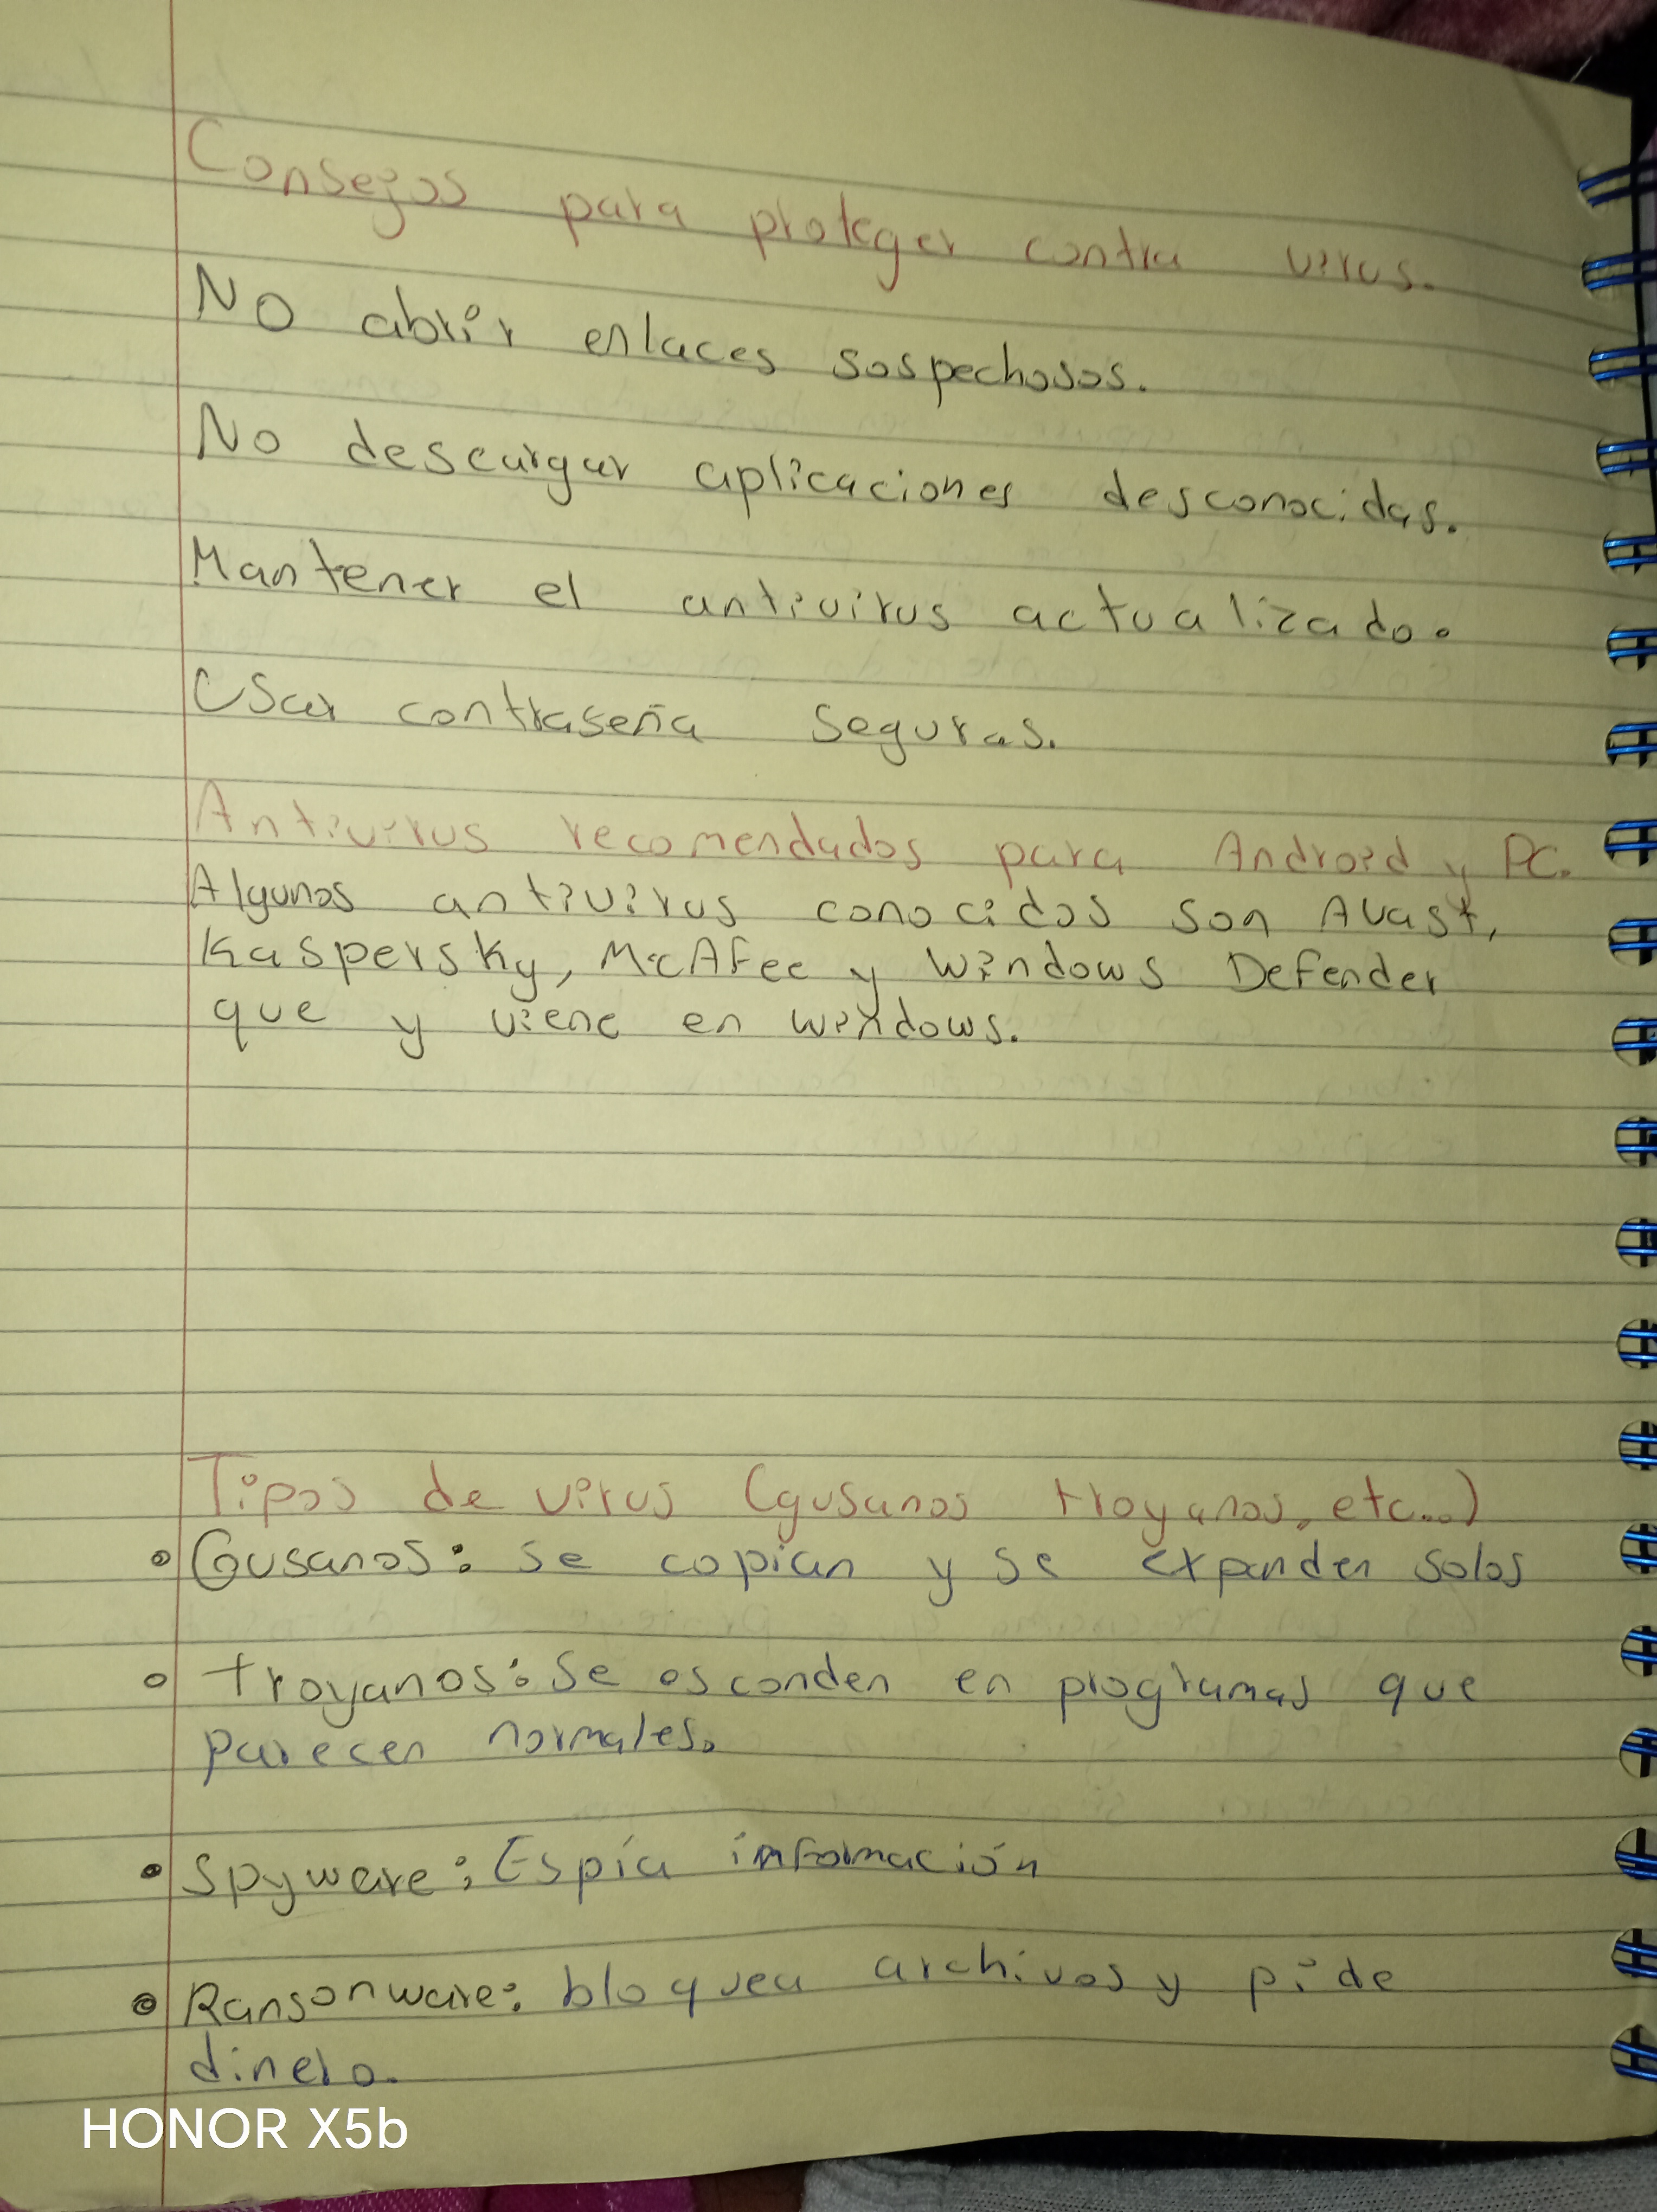 Consejos para proteger contra virus.
No abrir enlaces sospechosos.
No descargar aplicaciones desconocidas.
Mantener el antivirus actualizado.
Usar contraseña seguras.
Antivirus recomendados para Android y PC.
Algunos antivirus conocidos son Avast,
Kaspersky, McAFee y Windows Defender
que y viene en windows.
Tipos de virus (gusanos troyanos, etc...)
Gusanos: se copian y se expanden solos
troyanos: se esconden en programas que
parecen normales.
Spyware: Espía información
Ransonware: bloquea archivos y pide
dinero.
HONOR X5b